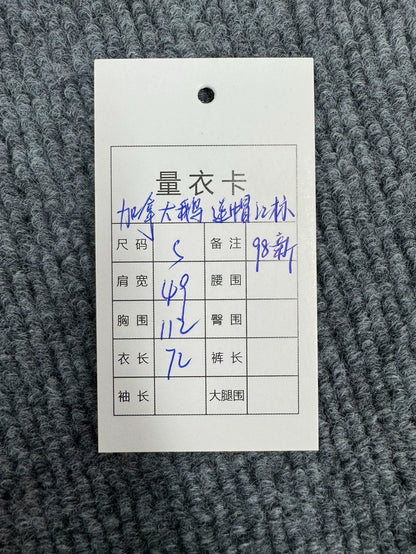 量衣卡
加拿大鹅 连帽 红标
尺码 S 备注 98新
肩宽 49 腰围
胸围 112 臀围
衣长 72 裤长
袖长 大腿围